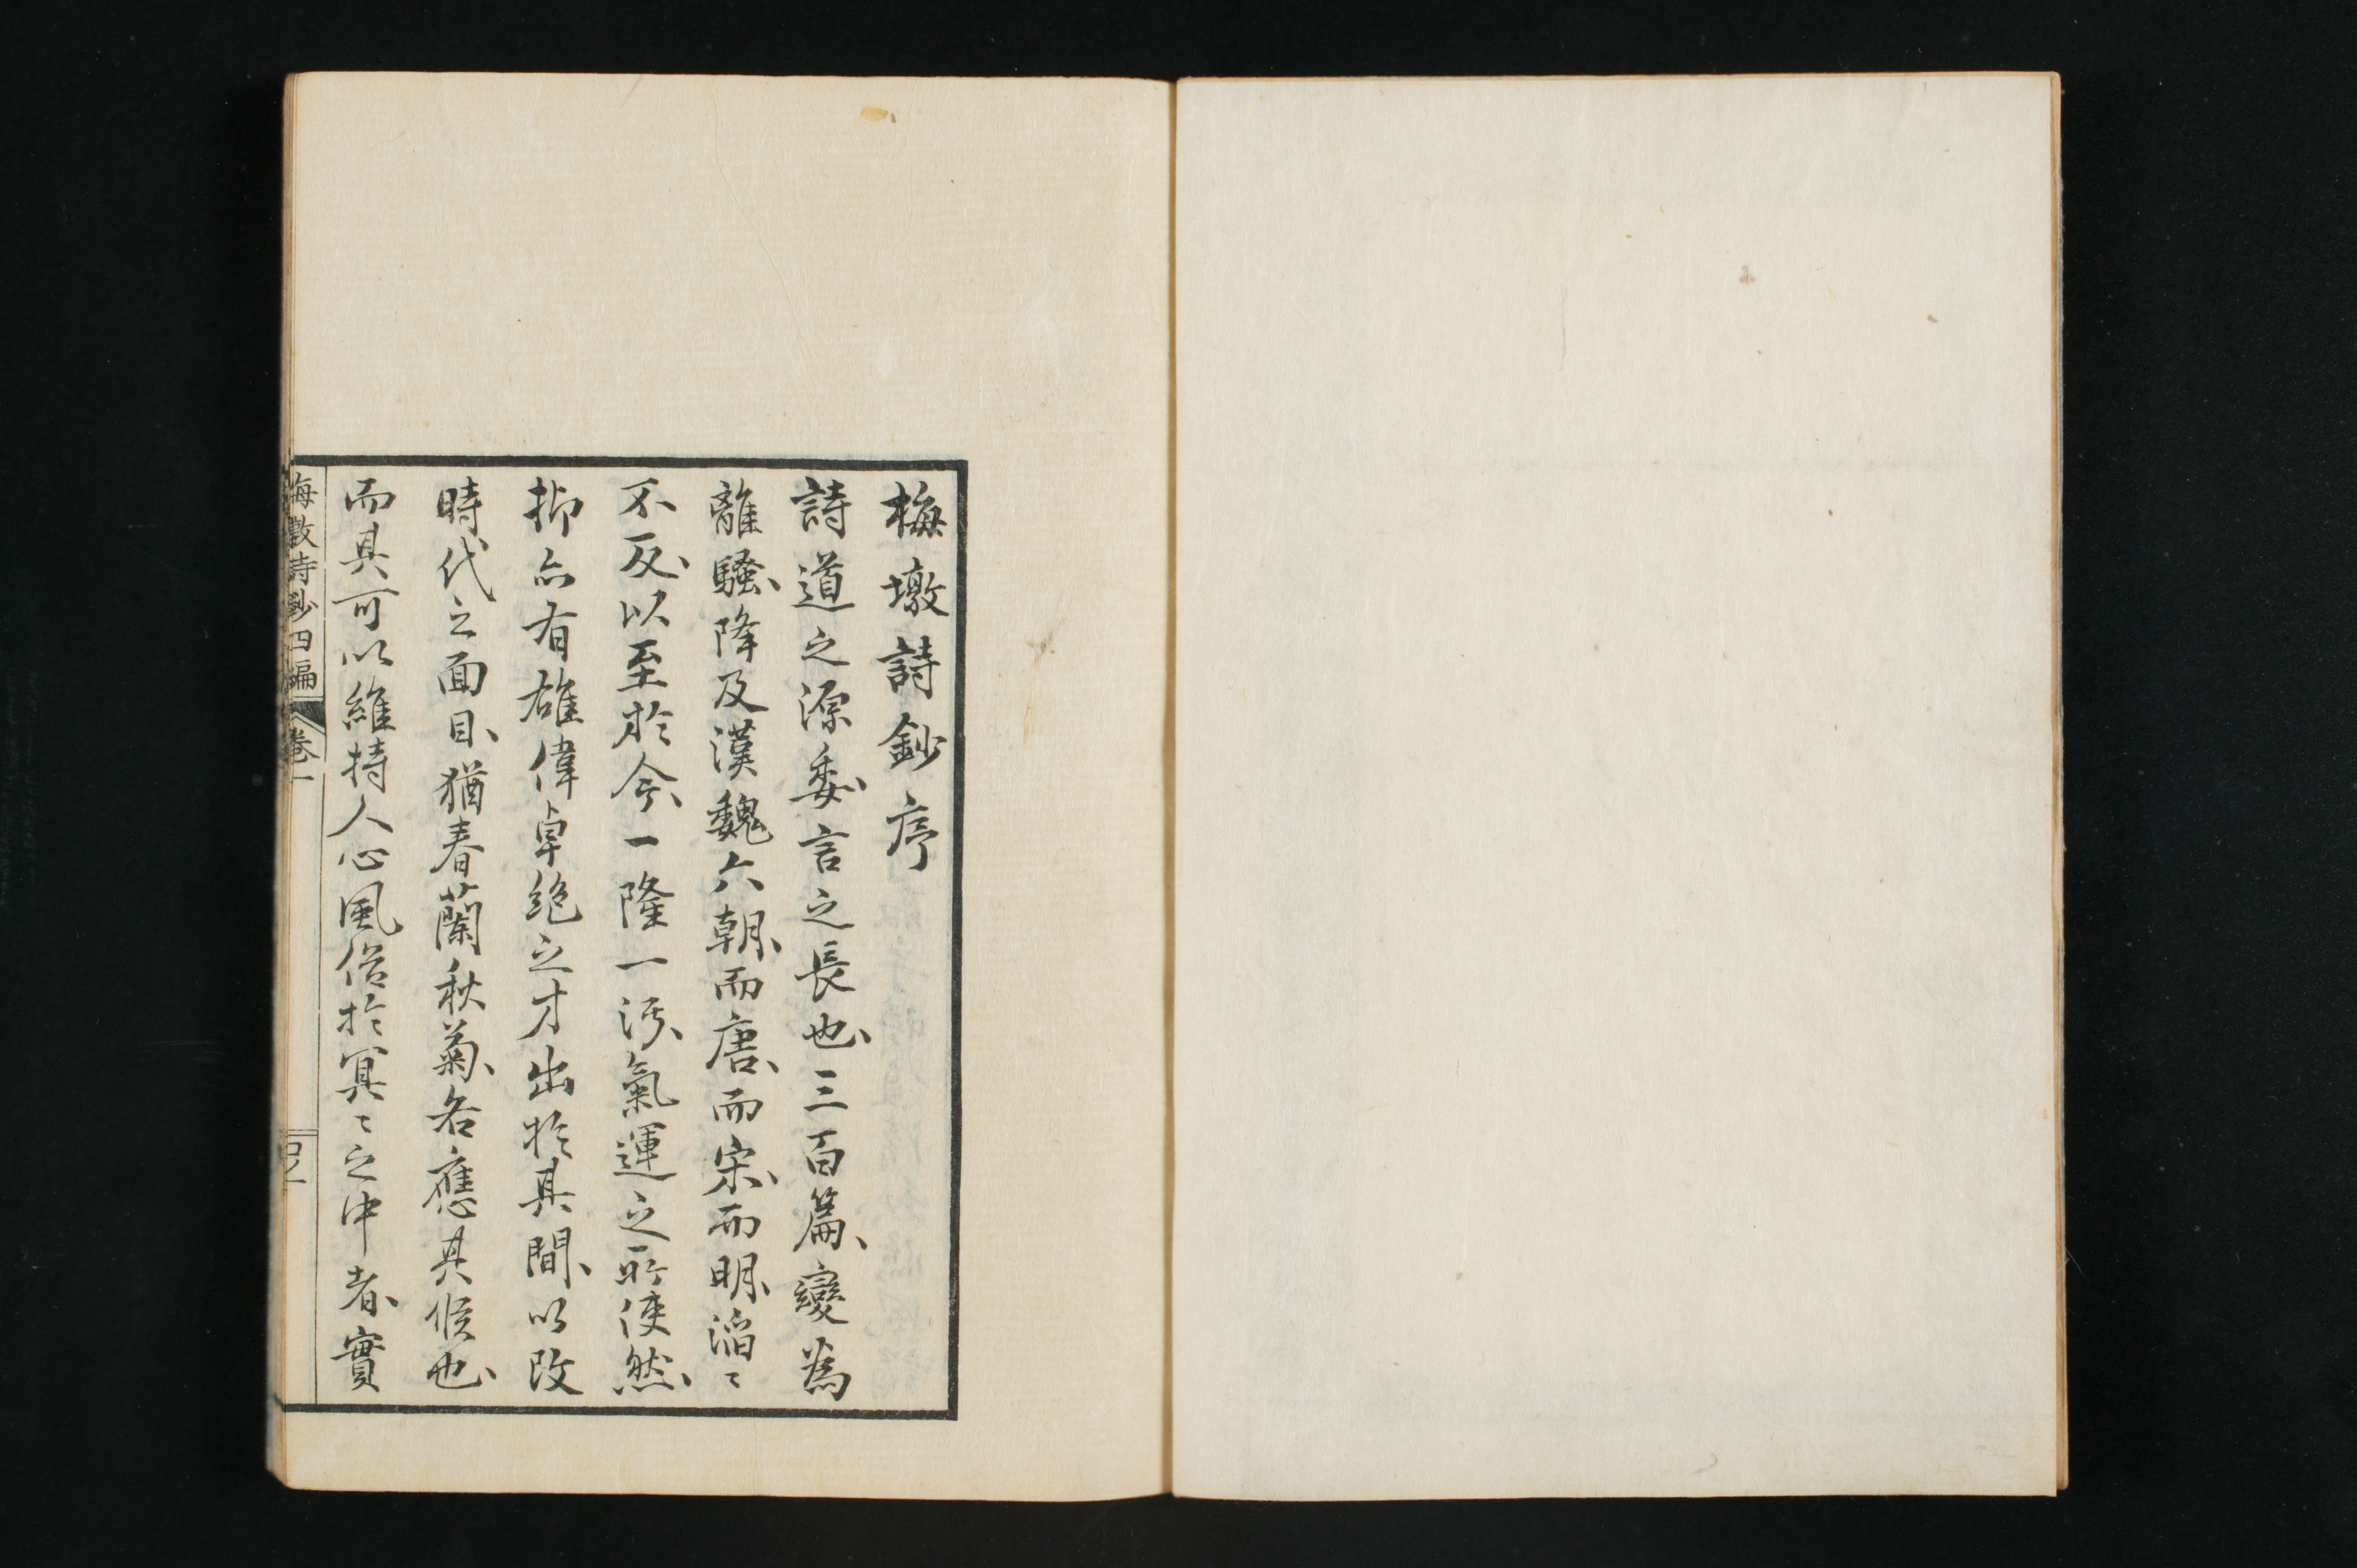 梅墩詩鈔序
詩道之源委、言之長也、三百篇、變為
離騷、降及漢魏六朝、而唐、而宋、而明、滔〻
不反、以至於今、一隆一汚、氣運之所使然、
抑亦有雄偉卓絶之才出於其間、以改
時代之面目、猶春蘭秋菊、各應其候也、
而其可以維持人心風俗於冥〻之中者、實
梅墩詩鈔四編 卷一